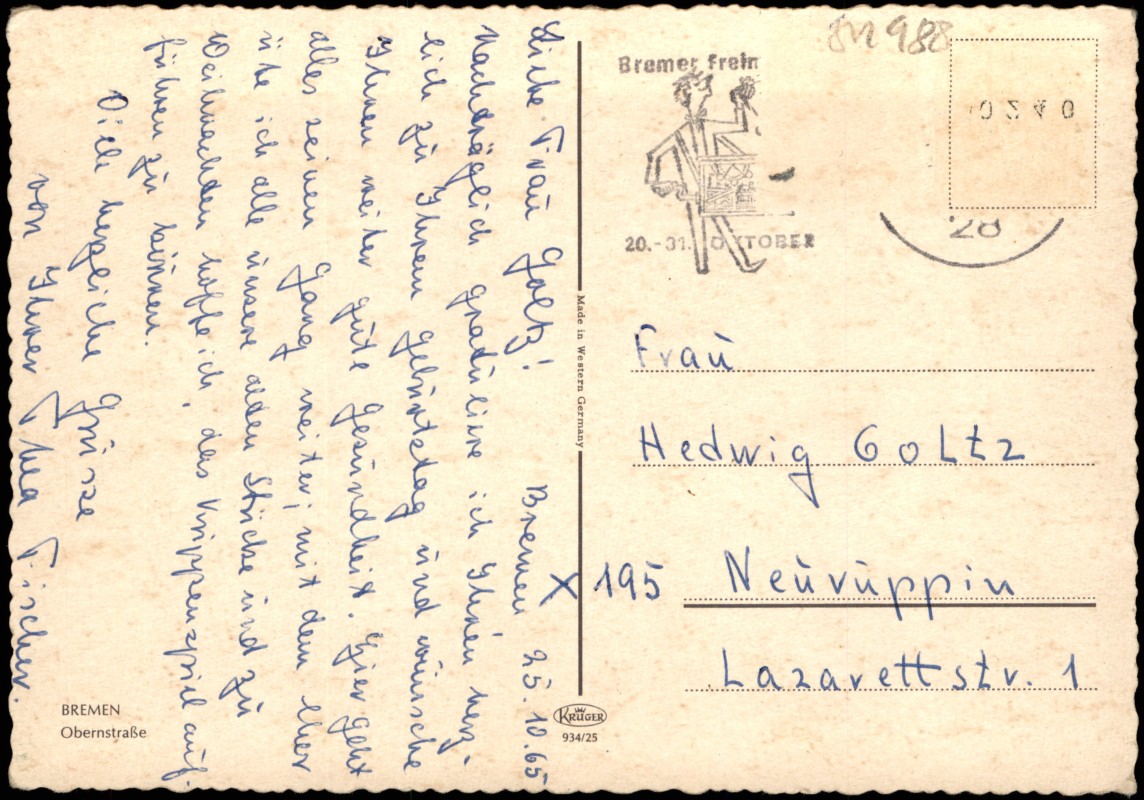 Liebe Frau Goltz! Bremen 25.10.65
Nachdräglich graduliere ich Ihnen herz-
lich zu Ihrem Geburtstag und wünsche
Ihnen weiter gute Gesundheit. Hier geht
alles seinen Gang weiter; mit dem Chor
übe ich alle unsere alten Stücke und zu
Weihnachten hoffe ich, das Krippenspiel auf-
führen zu können.
Viele herzliche Grüsse
von Ihrer Thea Fischer.
BREMEN
Obernstraße
Made in Western Germany
KRÜGER
934/25
988
Bremer freim
20.-31. OKTOBER
28
Frau
Hedwig Goltz
X 195 Neuruppin
Lazarettstr. 1